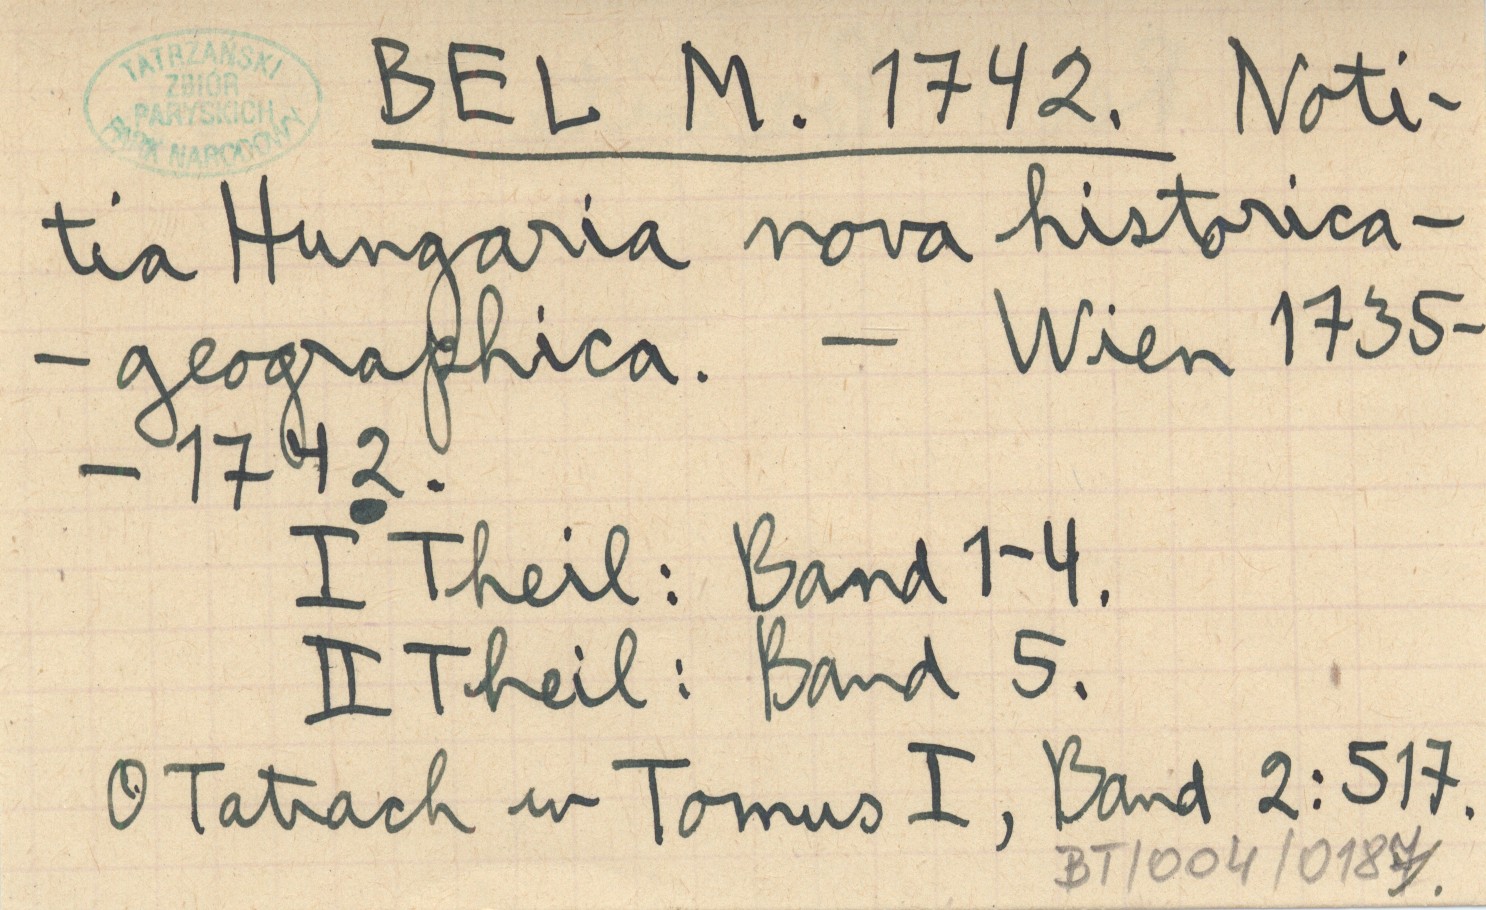 TATRZAŃSKI
ZBIÓR
PARYSKICH
PARK NARODOWY
BEL M. 1742. Noti-
tia Hungaria nova historica-
- geographica. — Wien 1735-
- 1742.
I Theil: Band 1-4.
II Theil: Band 5.
O Tatrach w Tomus I, Band 2:517.
BT/004/0187.